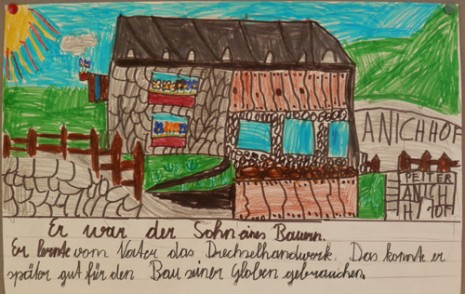 ANICHHOF
PETER
ANICH
Er war der Sohn eines Bauern.
Er lernte vom Vater das Drechselhandwerk. Das konnte er
später gut für den Bau seiner Globen gebrauchen.